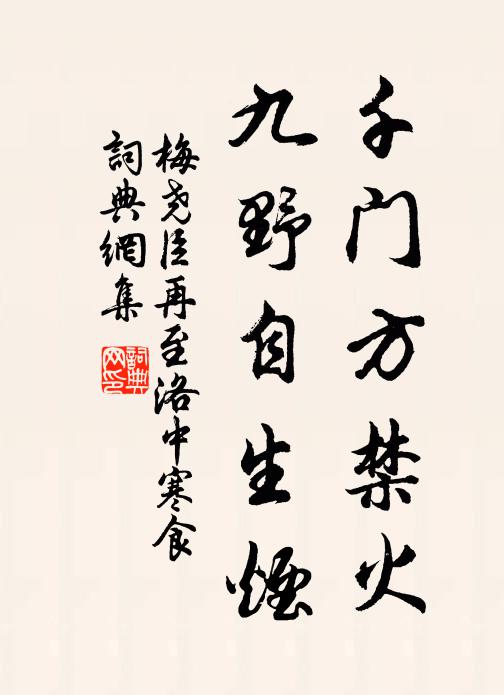 千门方禁火
九野自生煙
梅尧臣再至洛中寒食
詞典網集
詞典网印